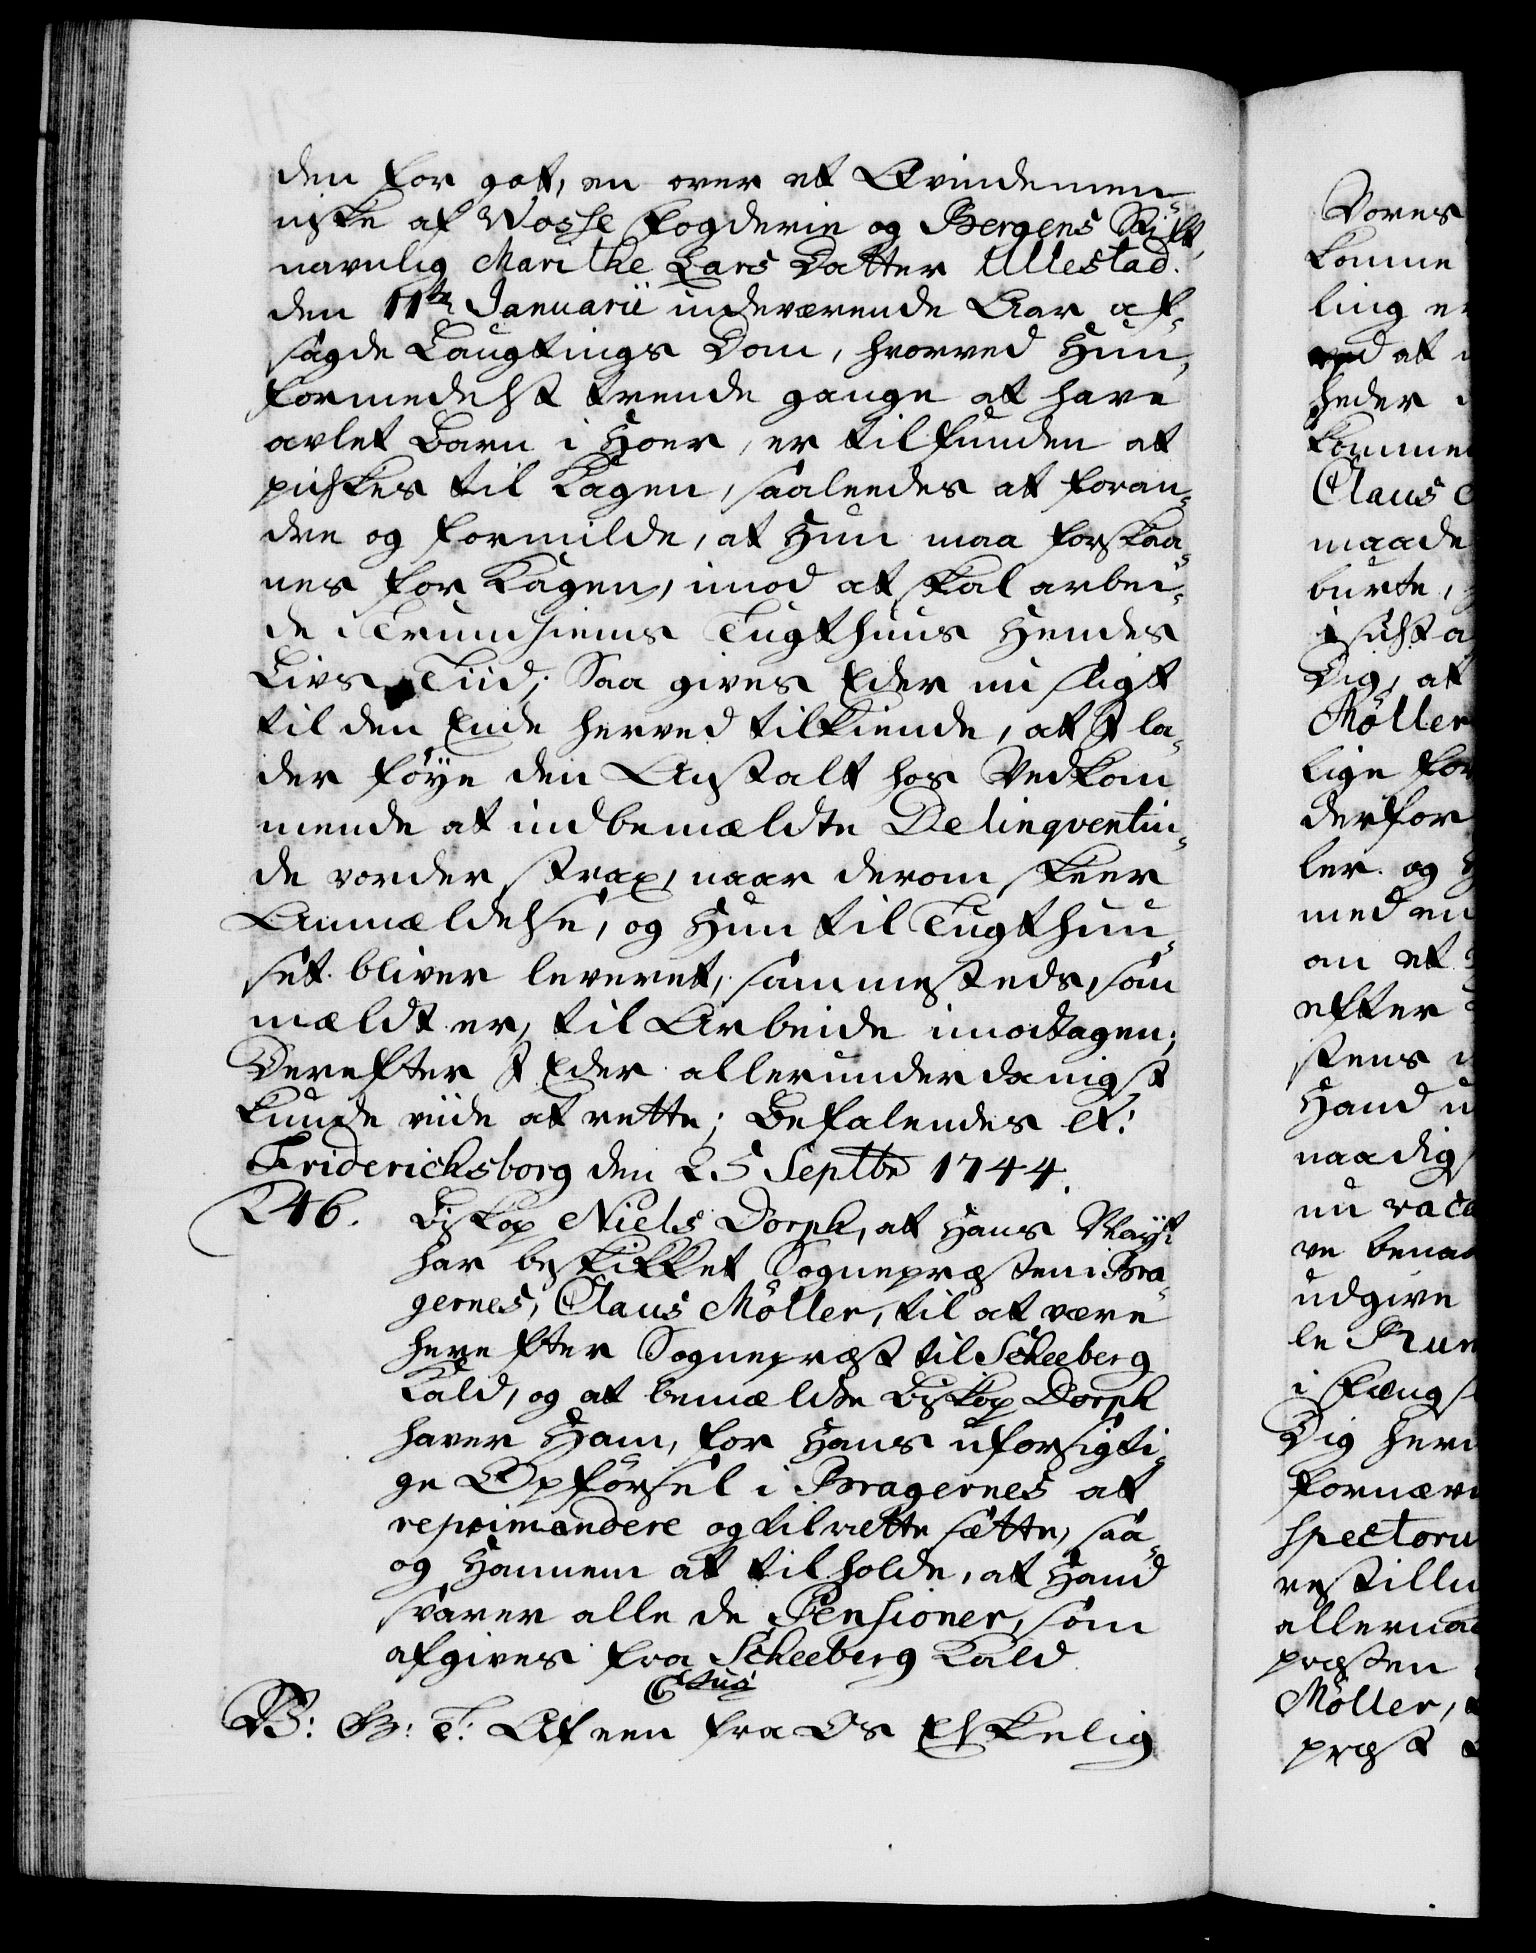 den for got, en over et Qvindemen-
niske af Wosse Fogderie og Bergens Stift,
navnlig Marithe Lars Datter Ullestad.
den 11te Januarii indeværende Aar af-
sagde Laugtings Dom, hvorved Hun,
formedelst trende gange at have
avlet Barn i Hoer, er tilfunden at
pidskes til Kagen, saaledes at foran-
dre og formilde, at Hun maa forskaa-
nes for Kagen, imod at skal arbei-
de i Trundhiems Tugthuus Hendes
Livs Tiid; Saa gives Eder nu sligt
til den Ende herved tilkiende, at I la-
der føye den Anstalt hos Vedkom
mende at indbemældte Delinqventin-
de vorder strax, naar derom skeer
Anmældelse, og Hun til Tugthuu-
set bliver leveret, sammesteds, som
mældt er, til Arbeide imodtagen;
Derefter I Eder allerunderdanigst
kunde viide at rette; Befalendes etc:
Friderichsborg den 25 Septbr 1744.
246. Biskop Niels Dorph, at Hans Mayst:
har beskikket Sognepræsten i Bra-
gernes, Claus Möller, til at være
herefter Sognepræst til Scheeberg
Kald, og at bemældte Biskop Dorph
haver Ham, for Hans uforsigti-
ge Opførsel i Bragernes at
reprimandere og tilrette sætte, saa-
og Hannem at tilholde, at Hand
svarer alle de Pensioner, som
afgives fra Scheeberg Kald
Ctus
V: G: T: Af een fra Os Elskelig
Vores
komme
ling
at
heder
kommen
Claus
maade
burte,
Dig, at
Möller
lige for
derfor
ler og
med en
an et
efter
stens
Hand
naadigs
nu vaca
ve bena
udgive
le
i Fængs
Dig her
fornæv
spectoru
restille
allernaa
præsten
Möller,
præst